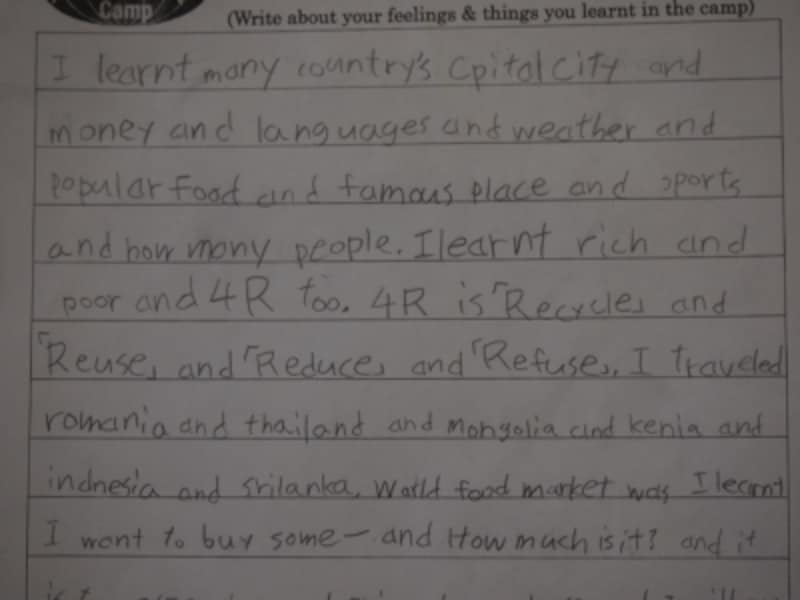 Camp
(Write about your feelings & things you learnt in the camp)
I learnt many country's Cpital City and
money and languages and weather and
popular food and famous place and sports
and how many people. I learnt rich and
poor and 4R too. 4R is「Recycle」and
「Reuse」and「Reduce」and「Refuse」. I traveled
romania and thailand and mongolia and kenia and
indnesia and srilanka. World food market was I learnt
I want to buy some— and How much is it? and it